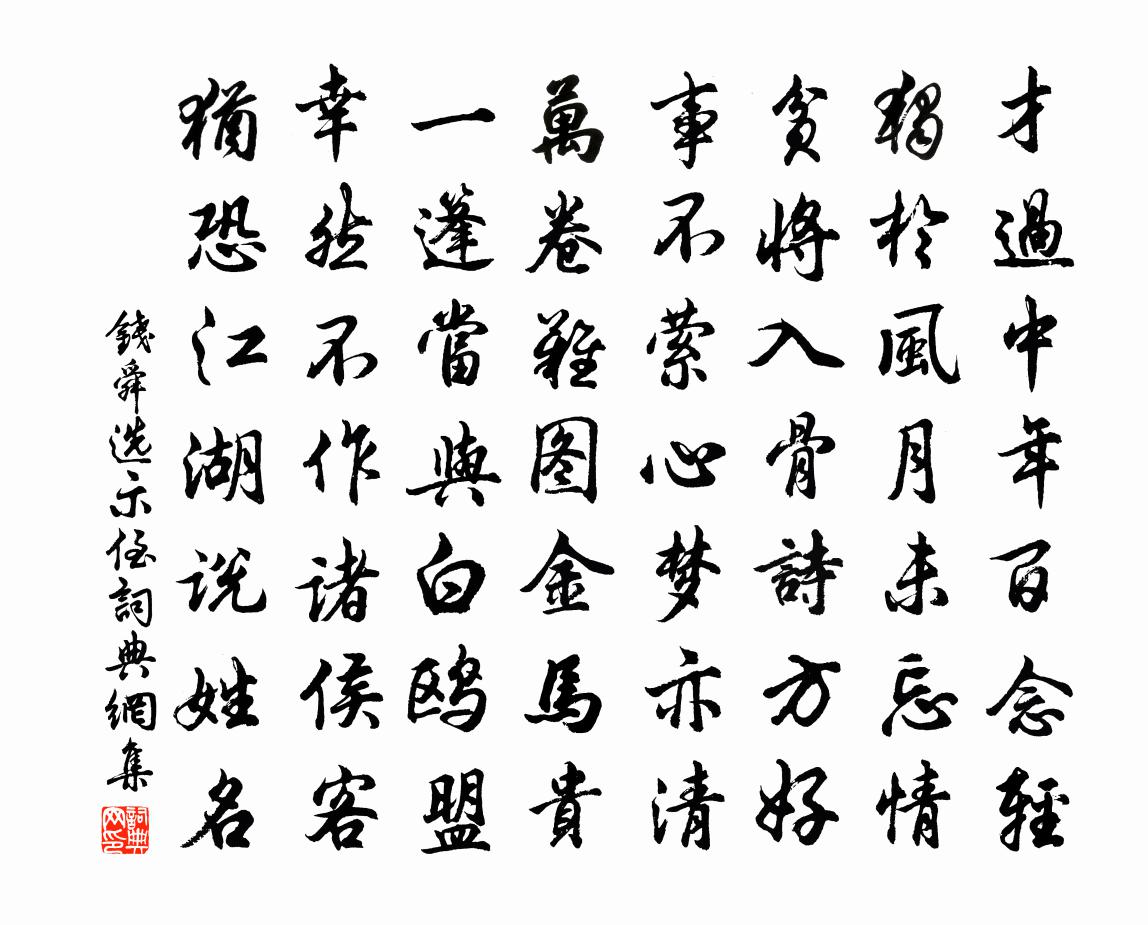 才過中年百念輕
獨於風月未忘情
貧將入骨詩方好
事不萦心梦亦清
萬卷難图金馬貴
一篷當與白鸥盟
幸然不作諸侯客
猶恐江湖说姓名
錢舜选示侄詞典網集
詞典网印